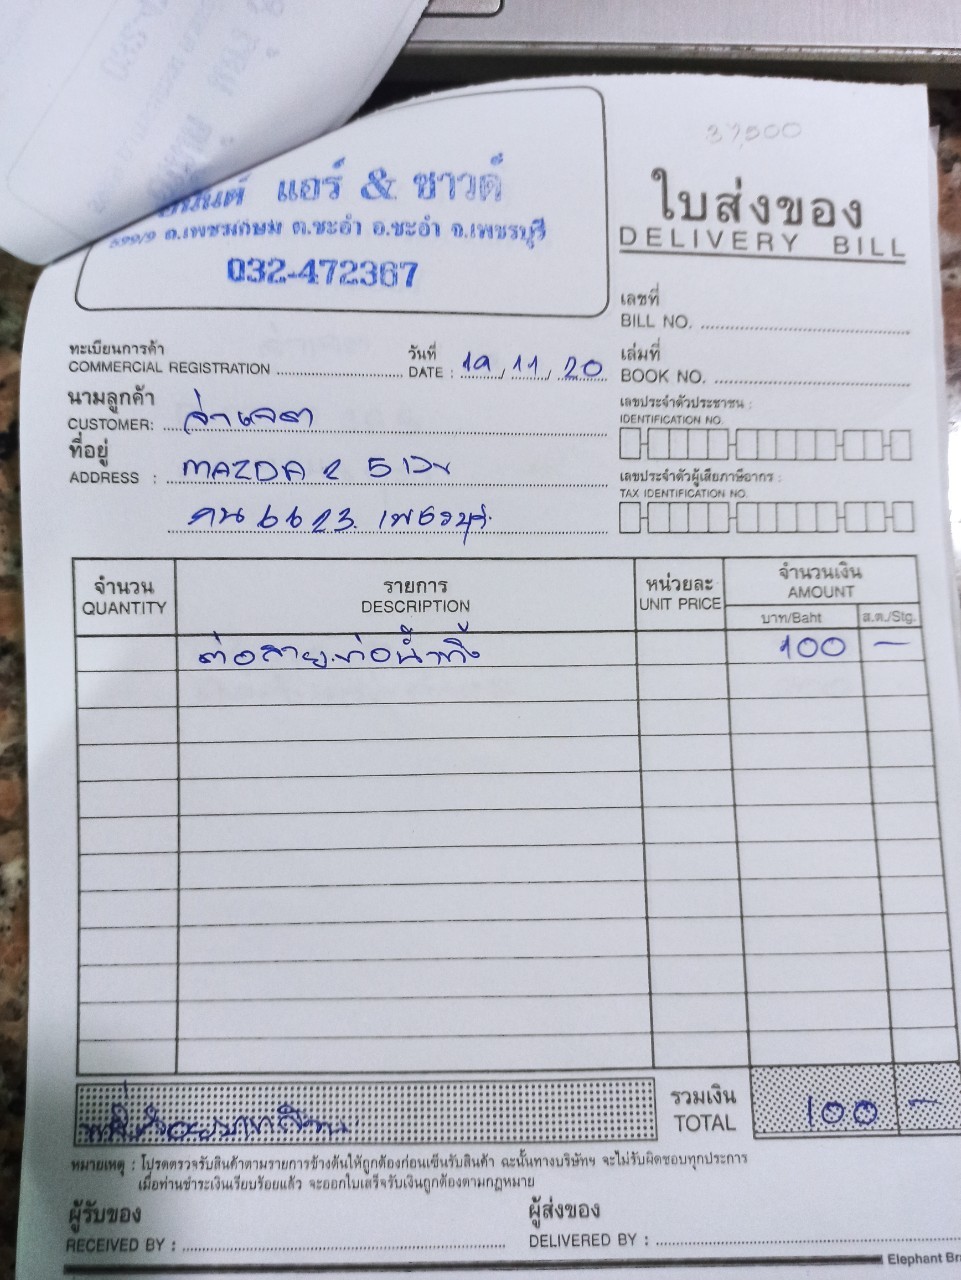 37,500
แอร์ & ซาวด์
599/9 ถ.เพชรเกษม ต.ชะอำ อ.ชะอำ จ.เพชรบุรี
032-472367
ใบส่งของ
DELIVERY BILL
เลขที่
BILL NO.
ทะเบียนการค้า
COMMERCIAL REGISTRATION
วันที่
DATE : 19/11/20
เล่มที่
BOOK NO.
นามลูกค้า
CUSTOMER: จ่าเจตา
เลขประจำตัวประชาชน :
IDENTIFICATION NO.
ที่อยู่
ADDRESS : MAZDA 2 5 ประตู
เลขประจำตัวผู้เสียภาษีอากร :
TAX IDENTIFICATION NO.
กน 6623 เพชรบุรี
จำนวน
QUANTITY
รายการ
DESCRIPTION
หน่วยละ
UNIT PRICE
จำนวนเงิน
AMOUNT
บาท/Baht
ส.ต./Stg.
ต่อสายท่อน้ำทิ้ง 100 —
รวมเงิน
TOTAL 100 —
หมายเหตุ : โปรดตรวจรับสินค้าตามรายการข้างต้นให้ถูกต้องก่อนเซ็นรับสินค้า ฉะนั้นทางบริษัทฯ จะไม่รับผิดชอบทุกประการ
เมื่อท่านชำระเงินเรียบร้อยแล้ว จะออกใบเสร็จรับเงินถูกต้องตามกฎหมาย
ผู้รับของ
RECEIVED BY :
ผู้ส่งของ
DELIVERED BY :
Elephant